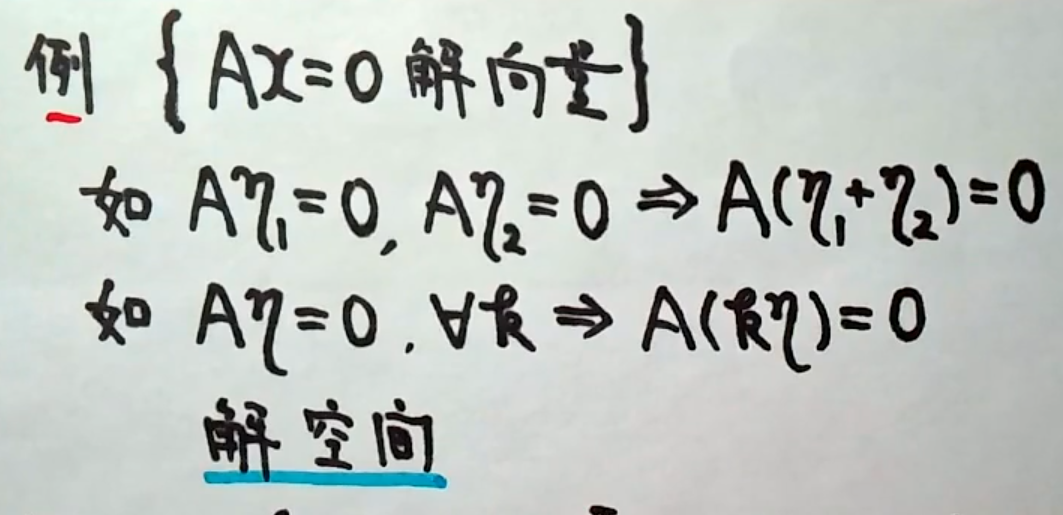 例 {Ax=0 解向量}
如 Aη₁=0, Aη₂=0 ⇒ A(η₁+η₂)=0
如 Aη=0, ∀k ⇒ A(kη)=0
解空间